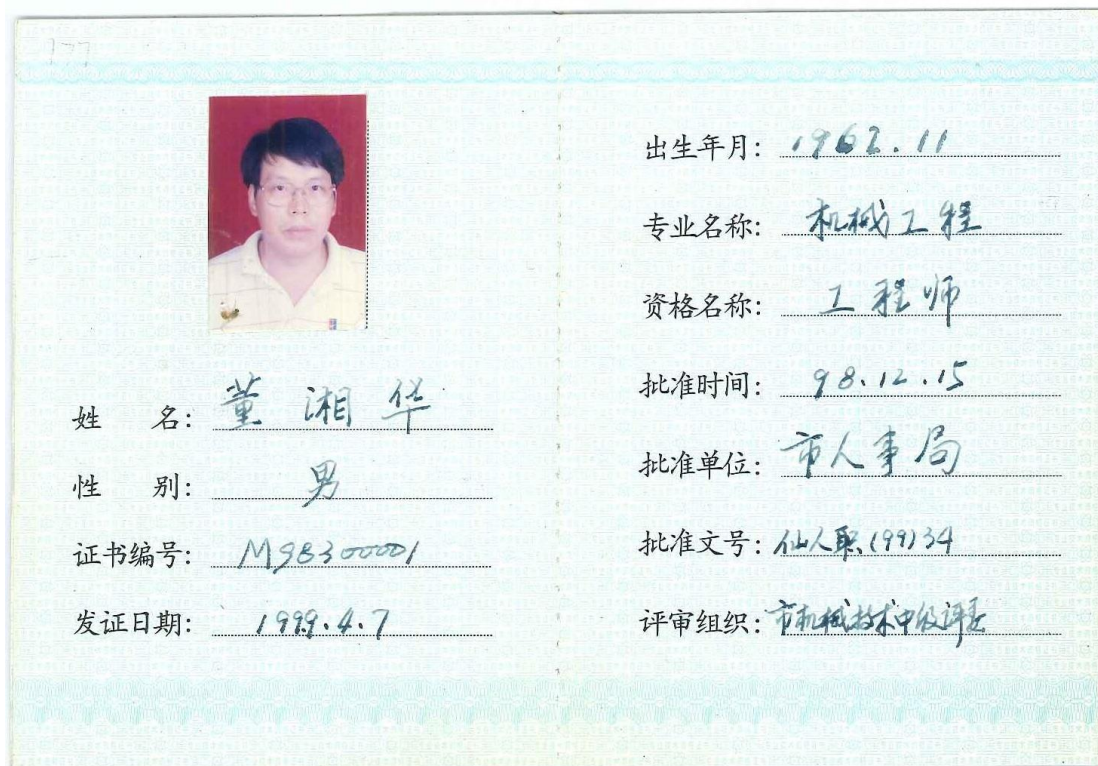 777
姓 名: 董湘华
性 别: 男
证书编号: M98300001
发证日期: 1999.4.7
出生年月: 1962.11
专业名称: 机械工程
资格名称: 工程师
批准时间: 98.12.15
批准单位: 市人事局
批准文号: 仙人职(99)34
评审组织: 市机械技术中级评委